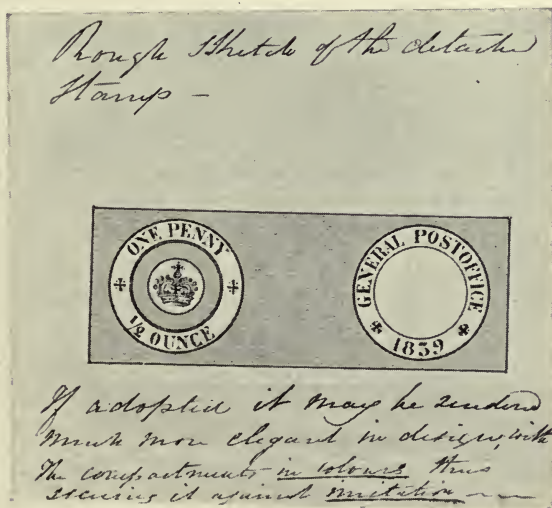 Rough Sketch of the detached
Stamp –
ONE PENNY
1/2 OUNCE
GENERAL POSTOFFICE
1839
If adopted it may be rendered
much more elegant in design, with
the compartments in colours, thus
securing it against imitation –